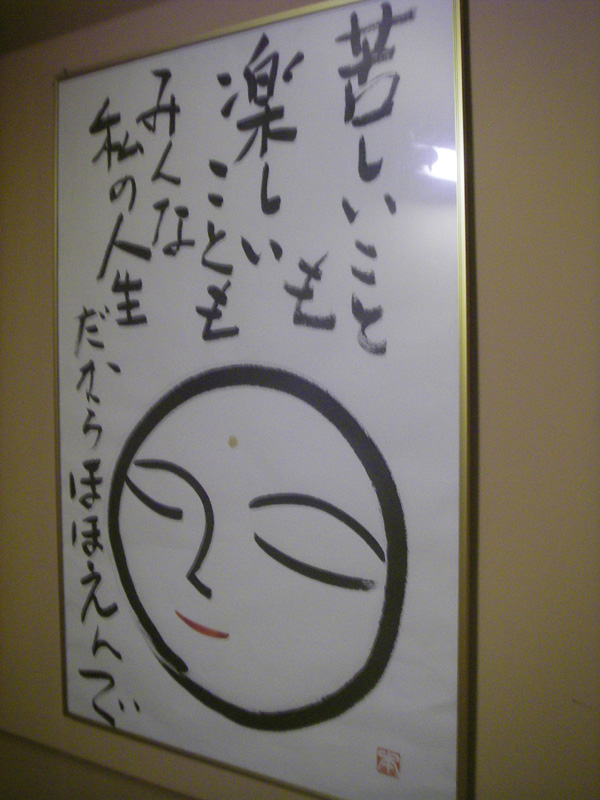 苦しいこと
も
楽しい
ことも
みんな
私の人生
だからほほえんで